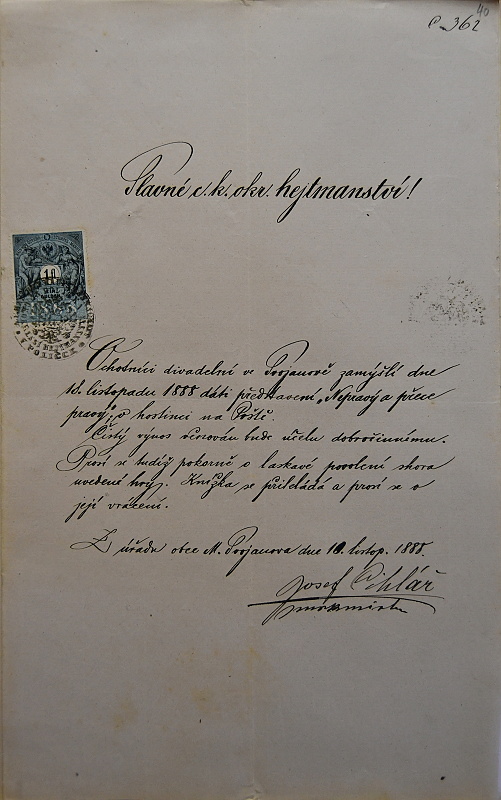 40
c. 362
Slavné c. k. okr. hejtmanství!
Ochotníci divadelní v Trojanově zamýšlí dne
18. listopadu 1888 dáti představení „Nepravý a přece
pravý“, v hostinci na Poště.
Čistý výnos věnován bude účelu dobročinnému.
Prosí se tudíž pokorně o laskavé povolení shora
uvedené hry. Knížka se přikládá a prosí se o
její vrácení.
Z úřadu obce M. Trojanova dne 10. listop. 1888.
Josef Cihlář